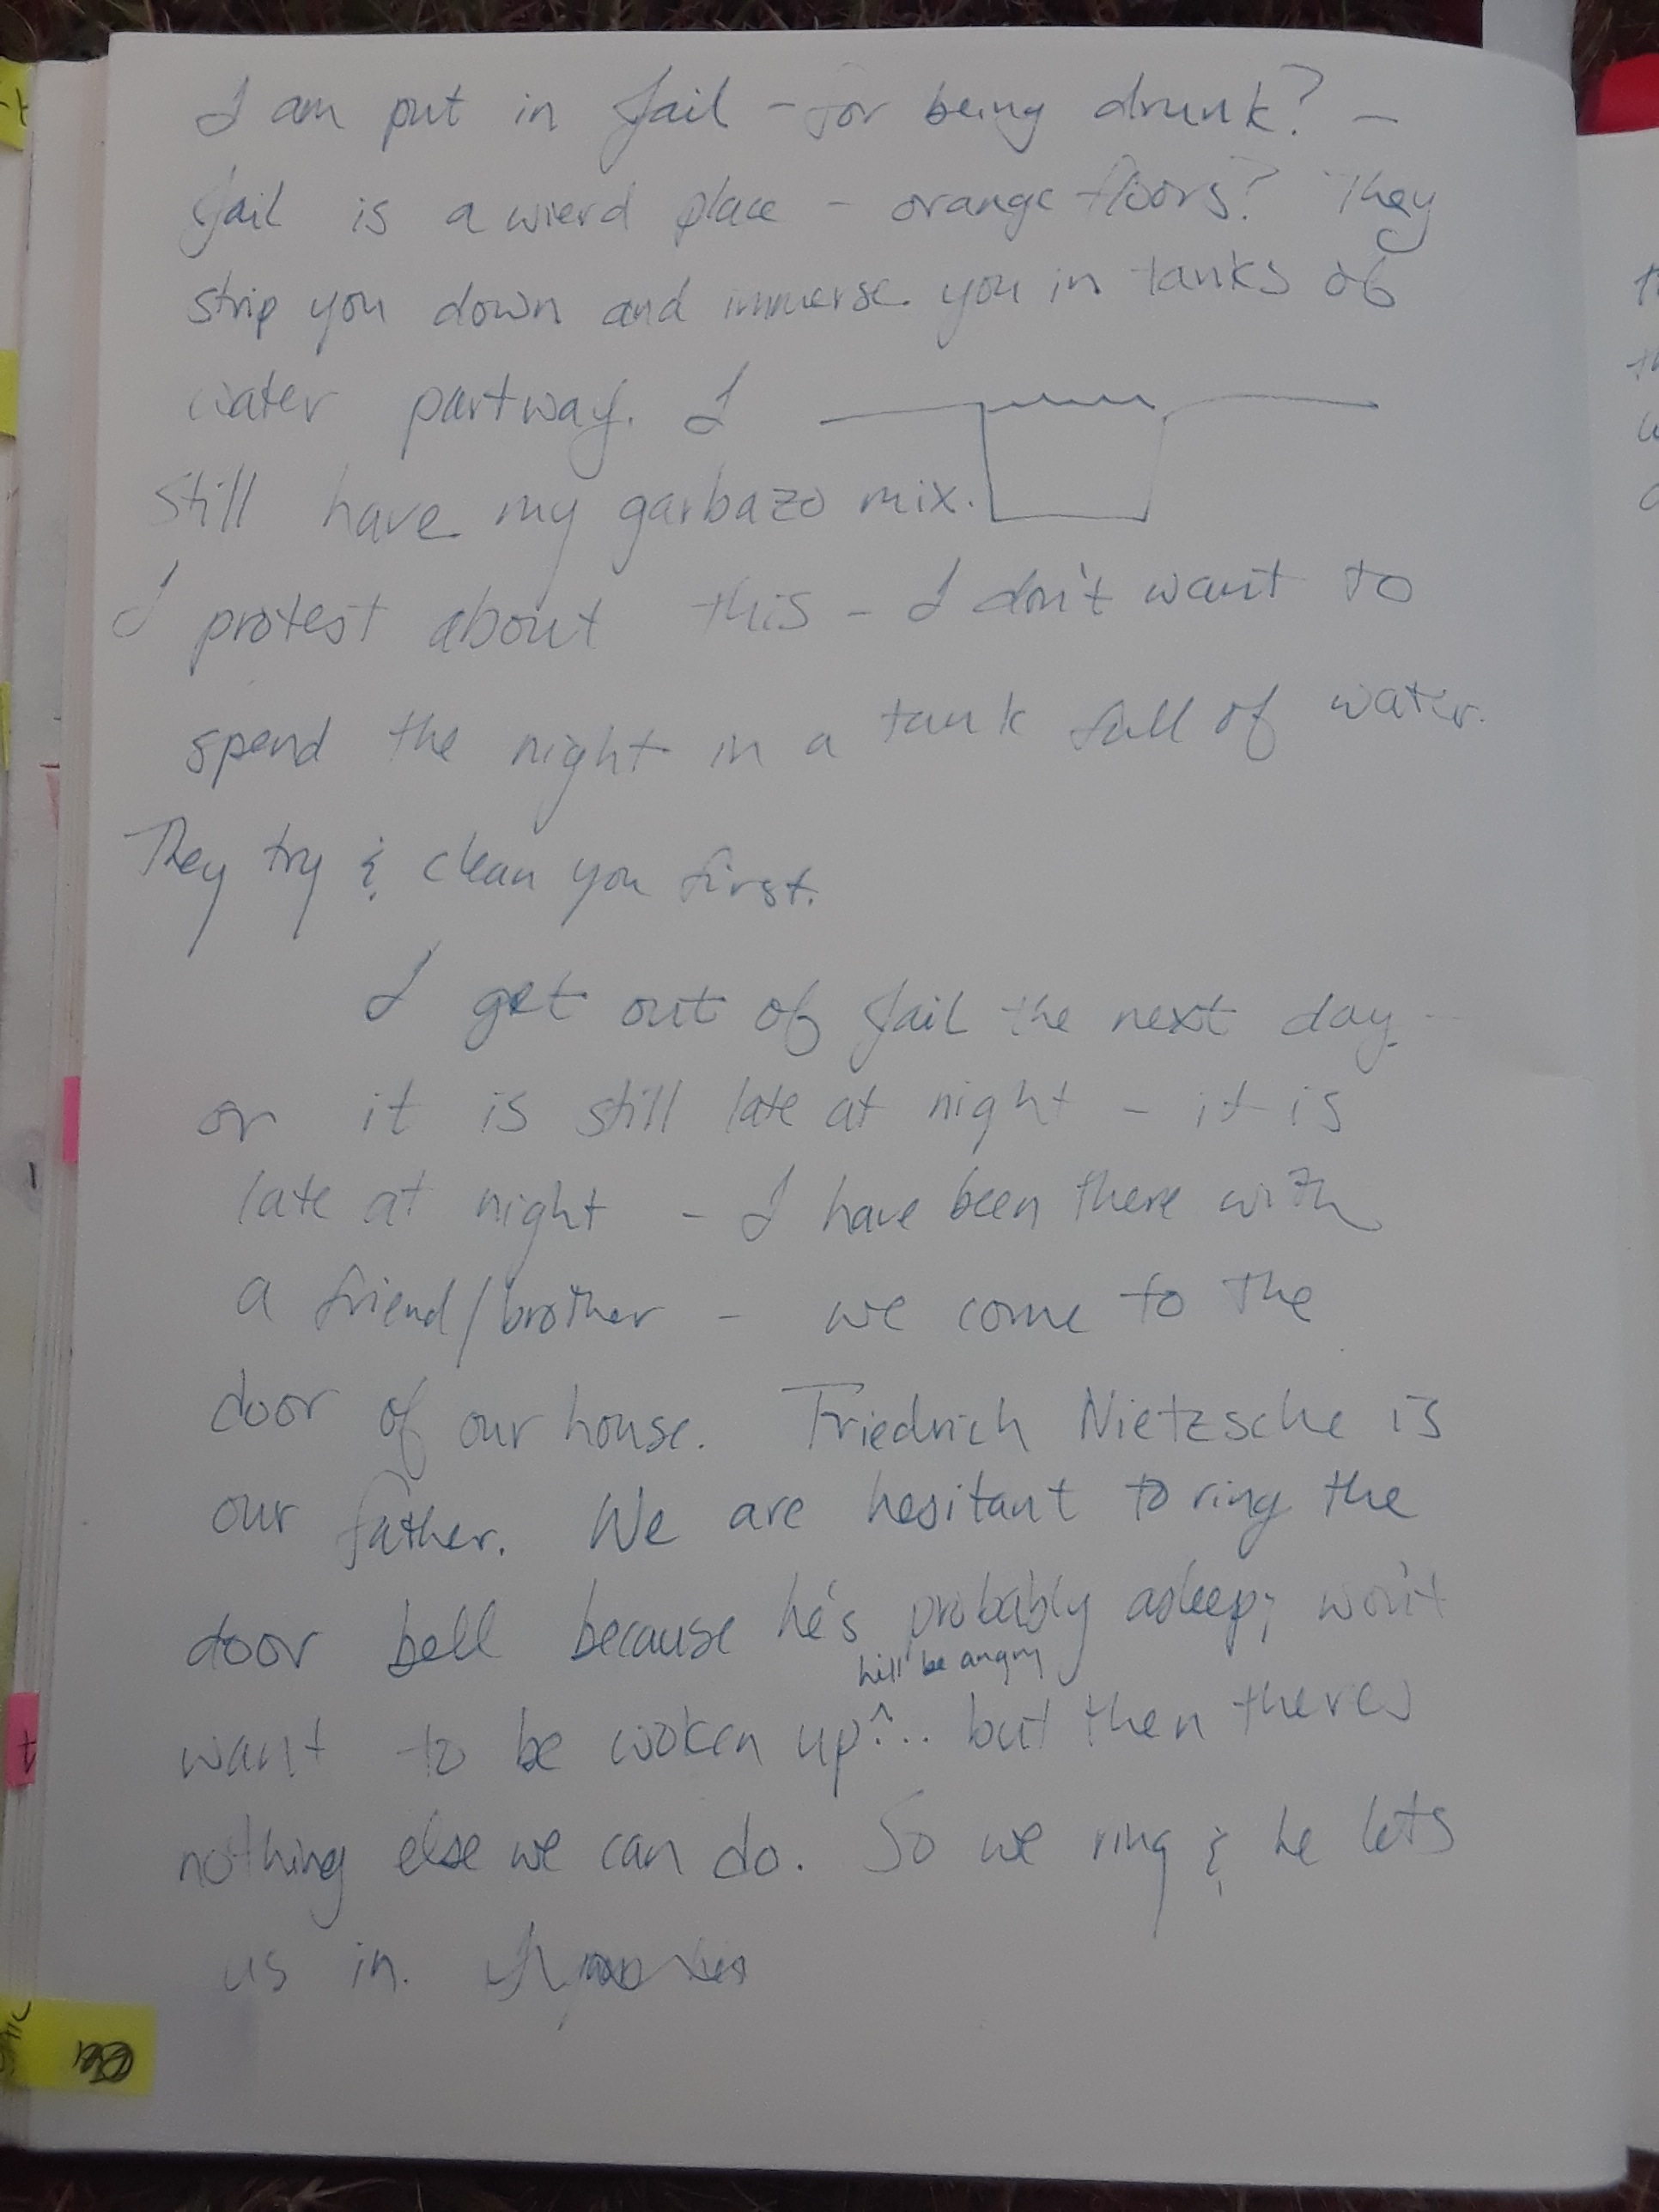 I am put in Jail - for being drunk? -
Jail is a wierd place - orange floors? They
strip you down and immerse you in tanks of
water partway. I
still have my garbazo mix.
I protest about this - I don't want to
spend the night in a tank full of water.
They try & clean you first.
I get out of Jail the next day -
or it is still late at night - it is
late at night - I have been there with
a friend/brother - we come to the
door of our house. Friedrich Nietzsche is
our father. We are hesitant to ring the
door bell because he's probably asleep, won't
he'll be angry
want to be woken up^... but then theres
nothing else we can do. So we ring & he lets
us in.